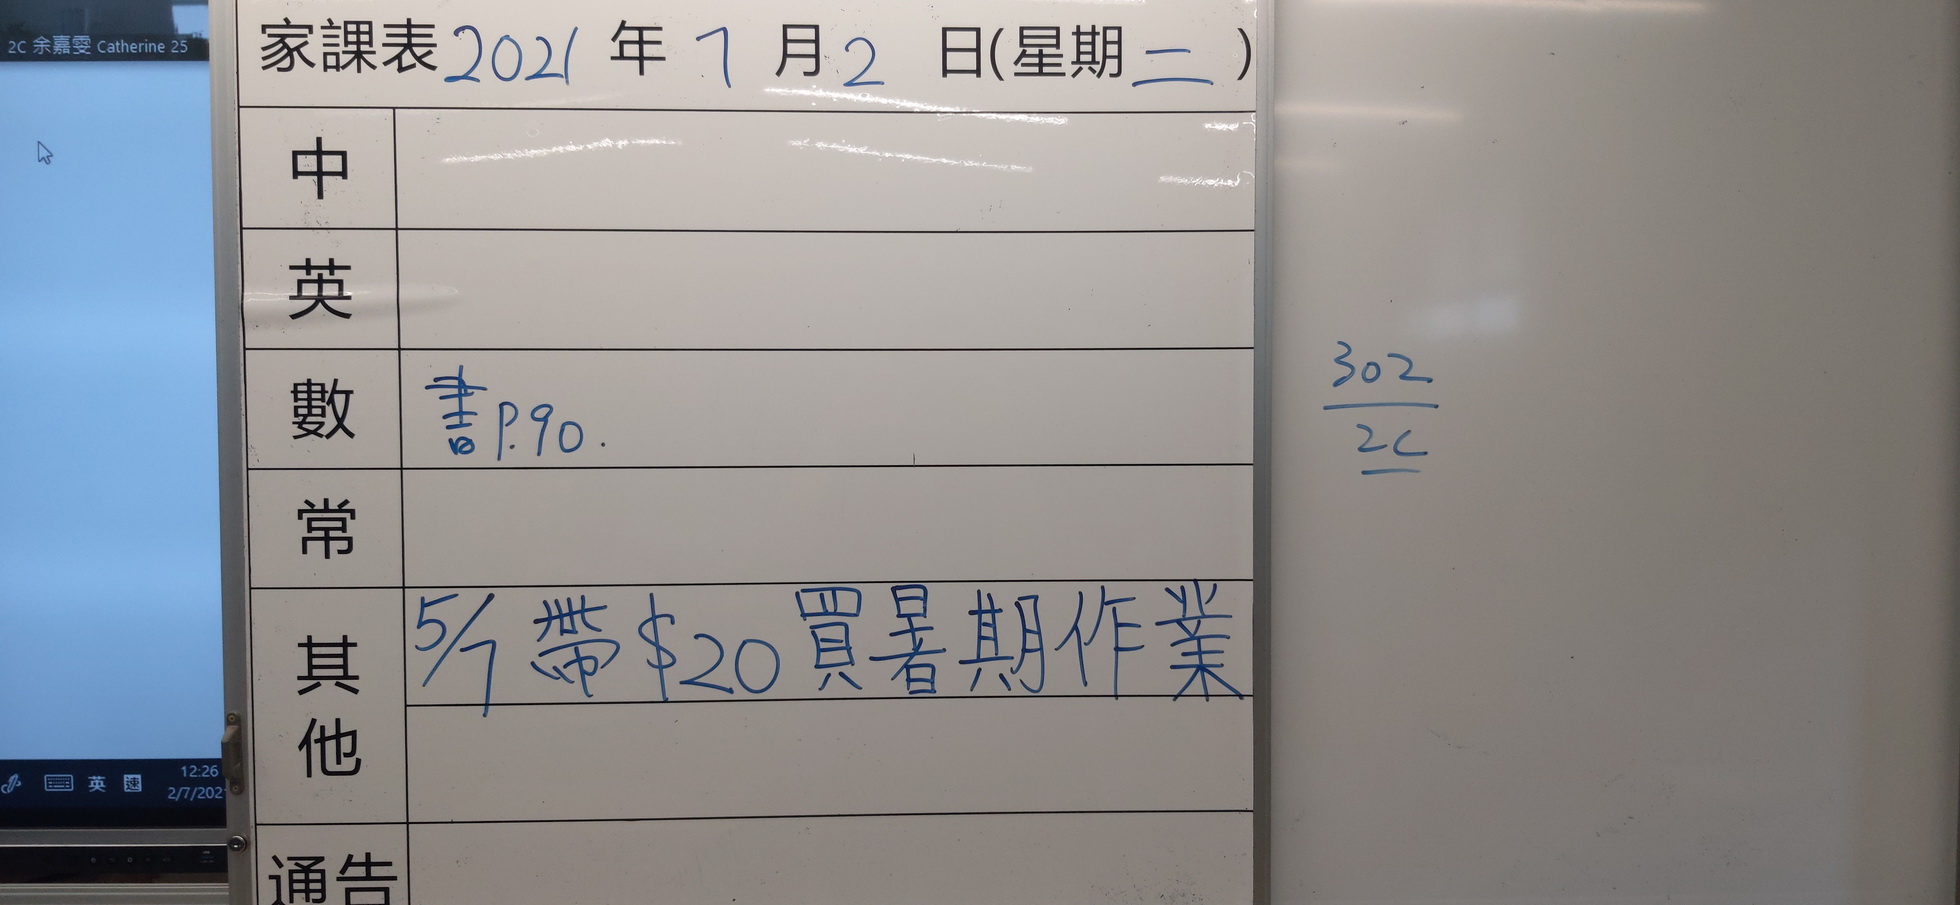 2C 余嘉雯 Catherine 25
家課表 2021 年 7 月 2 日(星期二)
中
英
數 書 P.90.
常
其他 5/7 帶 $20 買暑期作業
通告
302
2C
英 速 12:26
2/7/202